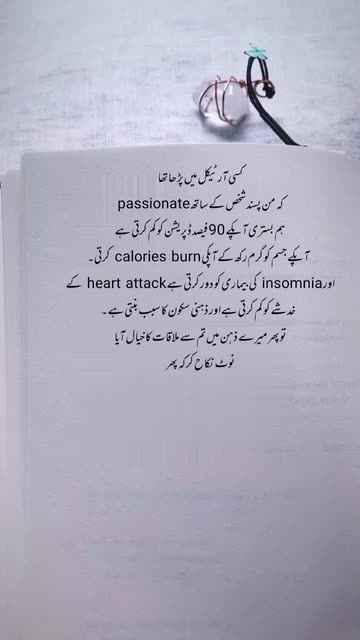 کسی آرٹیکل میں پڑھا تھا
کہ من پسند شخص کے ساتھ passionate
ہم بستری آپکے 90 فیصد ڈپریشن کو کم کرتی ہے
آپکے جسم کو گرم رکھ کے آپکی calories burn کرتی ۔
اور insomnia کی بیماری کو دور کرتی ہے heart attack کے
خدشے کو کم کرتی ہے اور ذہنی سکون کا سبب بنتی ہے ۔
تو پھر میرے ذہن میں تم سے ملاقات کا خیال آیا
نوٹ نکاح کر کہ پھر